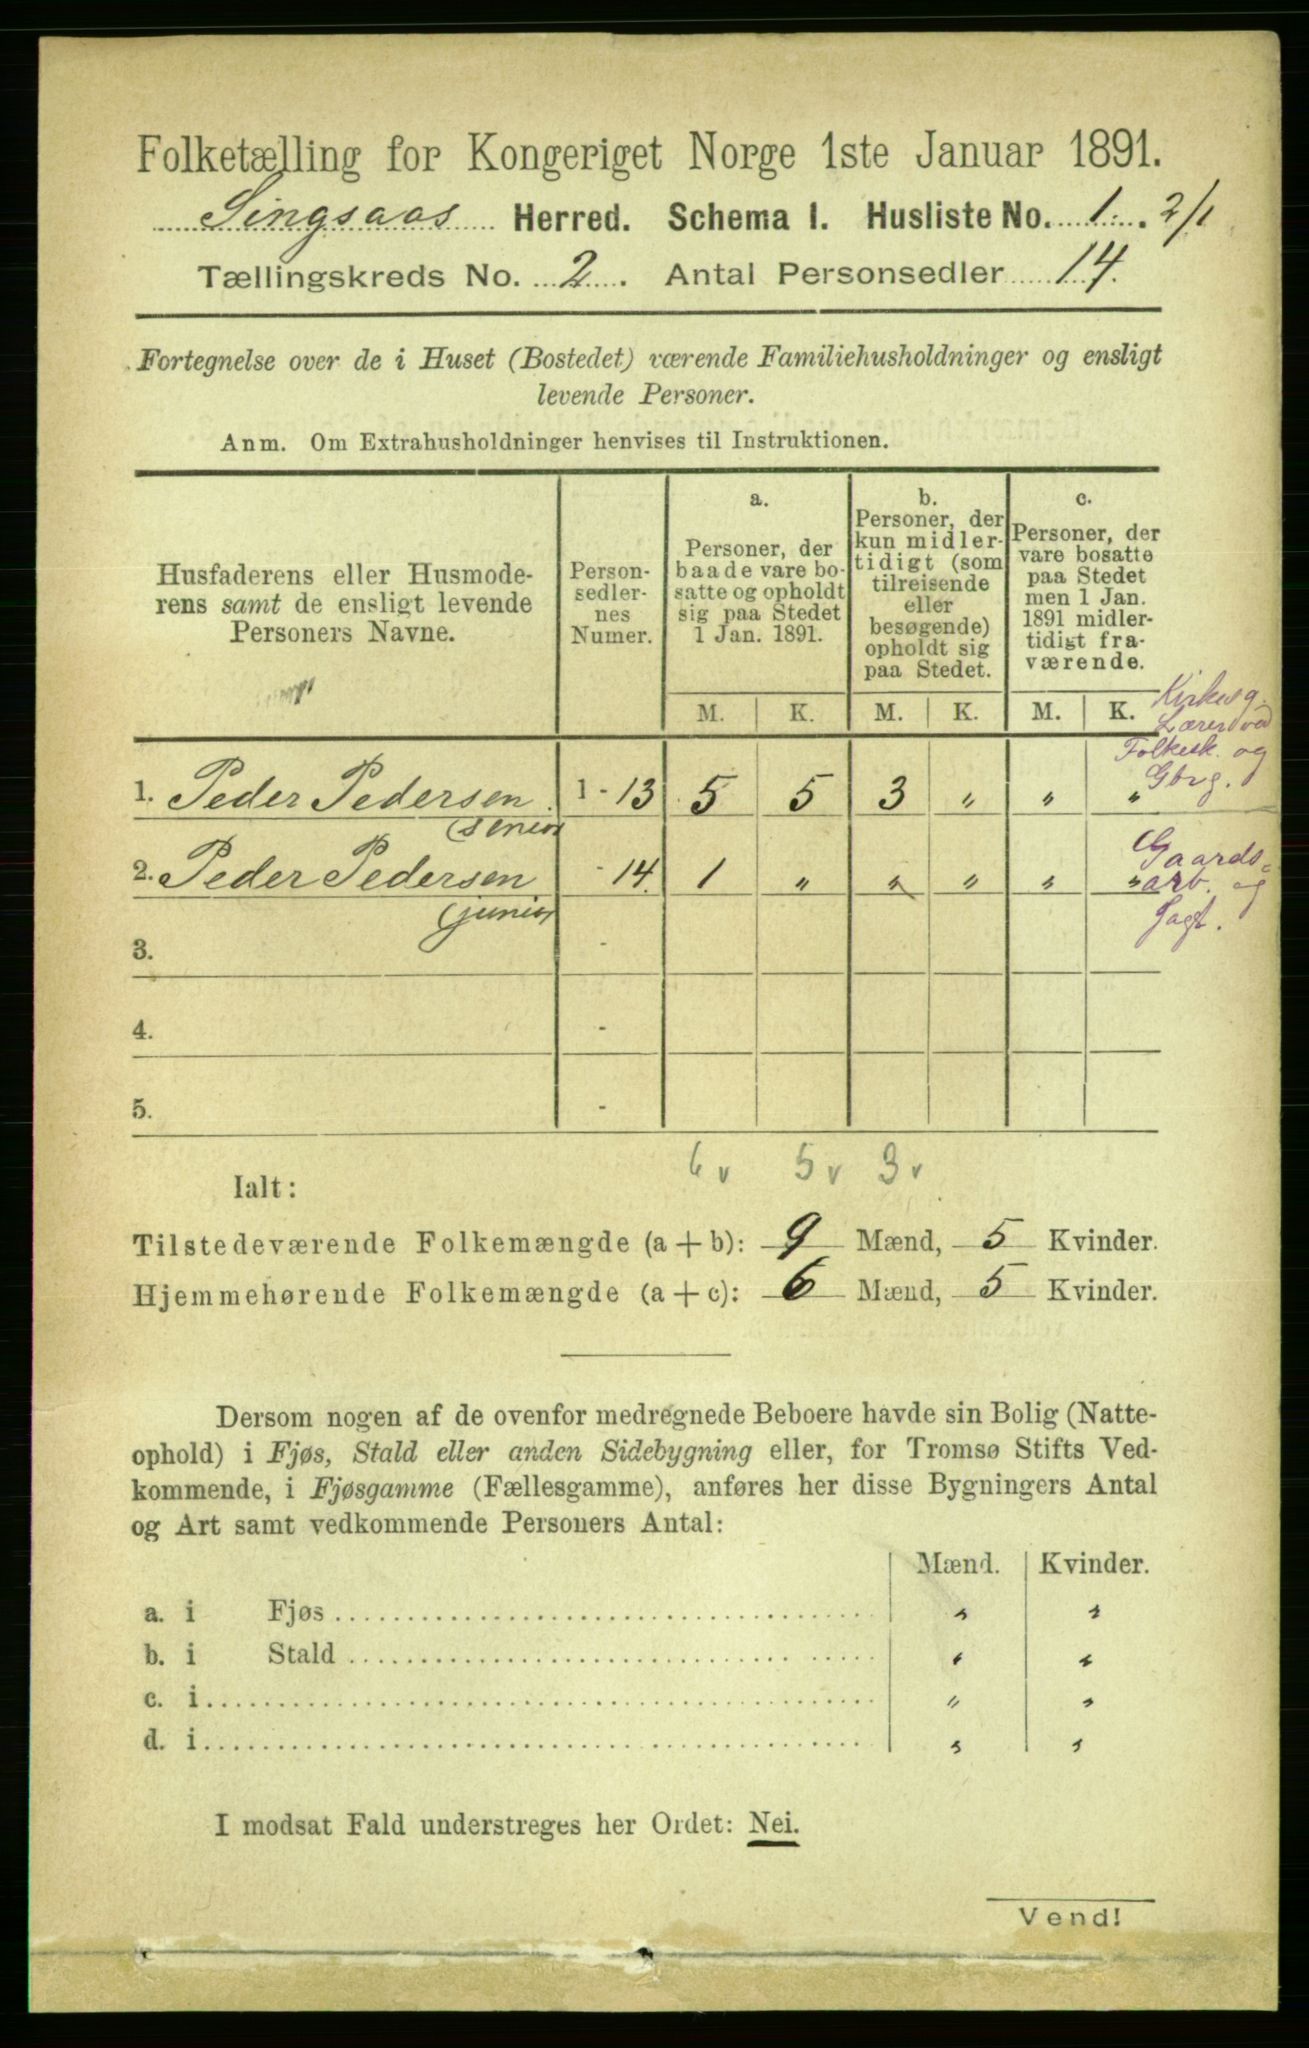 Folketælling for Kongeriget Norge 1ste Januar 1891.
Singsaas Herred. Schema I. Husliste No. 1. 2/1
Tællingskreds No. 2. Antal Personsedler 14.
Fortegnelse over de i Huset (Bostedet) værende Familiehusholdninger og ensligt
levende Personer.
Anm. Om Extrahusholdninger henvises til Instruktionen.
Husfaderens eller Husmode-
rens samt de ensligt levende
Personers Navne.
Person-
sedler-
nes
Numer.
a.
Personer, der
baade vare bo-
satte og opholdt
sig paa Stedet
1 Jan. 1891.
b.
Personer, der
kun midler-
tidigt (som
tilreisende
eller
besøgende)
opholdt sig
paa Stedet.
c.
Personer, der
vare bosatte
paa Stedet
men 1 Jan.
1891 midler-
tidigt fra-
værende.
M. K. M. K. M. K.
Kirkesg.
Lærer ved
Folkesk. og
Gbrg.
1. Peder Pedersen 1-13 5 5 3 " " "
(senior
2. Peder Pedersen -14. 1 " " " " "
(junior
Gaards-
arb. og
Jagt.
3. -
4. -
5. -
6 v 5 v 3 v
Ialt:
Tilstedeværende Folkemængde (a + b): 9 Mænd, 5 Kvinder.
Hjemmehørende Folkemængde (a + c): 6 Mænd, 5 Kvinder.
Dersom nogen af de ovenfor medregnede Beboere havde sin Bolig (Natte-
ophold) i Fjøs, Stald eller anden Sidebygning eller, for Tromsø Stifts Ved-
kommende, i Fjøsgamme (Fællesgamme), anføres her disse Bygningers Antal
og Art samt vedkommende Personers Antal:
Mænd. Kvinder.
a. i Fjøs " "
b. i Stald " "
c. i " "
d. i " "
I modsat Fald understreges her Ordet: Nei.
Vend!